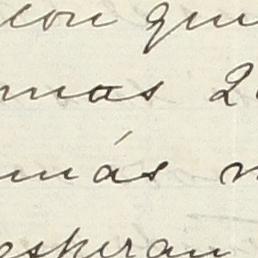 con qu
mas 2
más
esperan